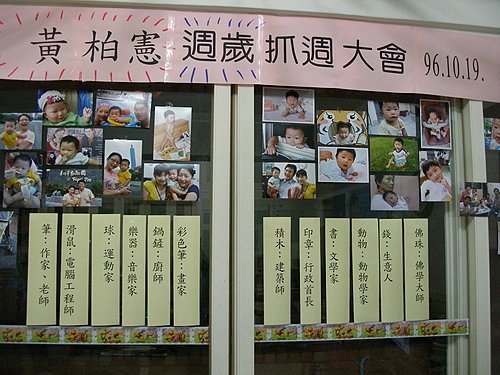 黃柏憲 週歲抓週大會 96.10.19.
佛珠：佛學大師
錢：生意人
動物：動物學家
書：文學家
印章：行政首長
積木：建築師
彩色筆：畫家
鍋鏟：廚師
樂器：音樂家
球：運動家
滑鼠：電腦工程師
筆：作家、老師